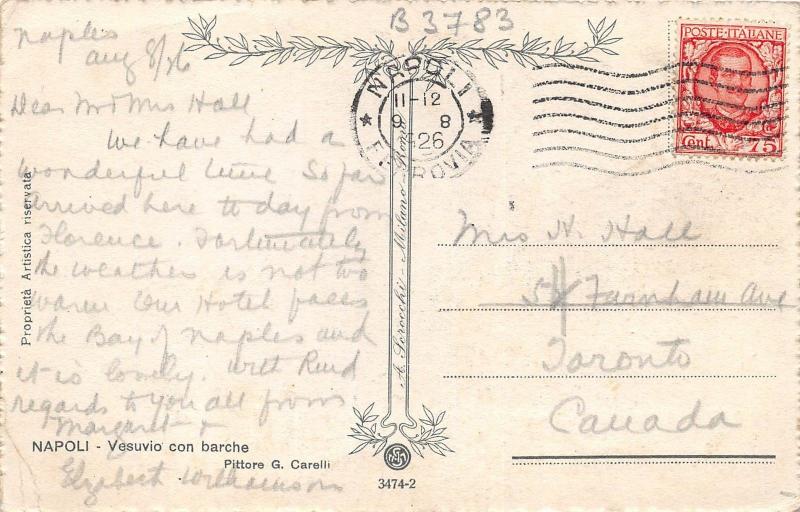 B 3783
Naples
Aug 8/26
Dear Mr & Mrs Hall
We have had a
wonderful time so far
arrived here to day from
Florence. Fortunately
the weather is not too
warm Our Hotel faces
the Bay of Naples and
it is lovely. With Kind
regards to you all from
Margaret &
Elizabeth Williamson
NAPOLI - Vesuvio con barche
Pittore G. Carelli
Proprietà Artistica riservata
A. Scrocchi - Milano - Roma
3474-2
NAPOLI
11-12
9 8
1926
FERROVIA
POSTE·ITALIANE
Cent. 75
Mrs H. Hall
54 Farnham Ave
Toronto
Canada